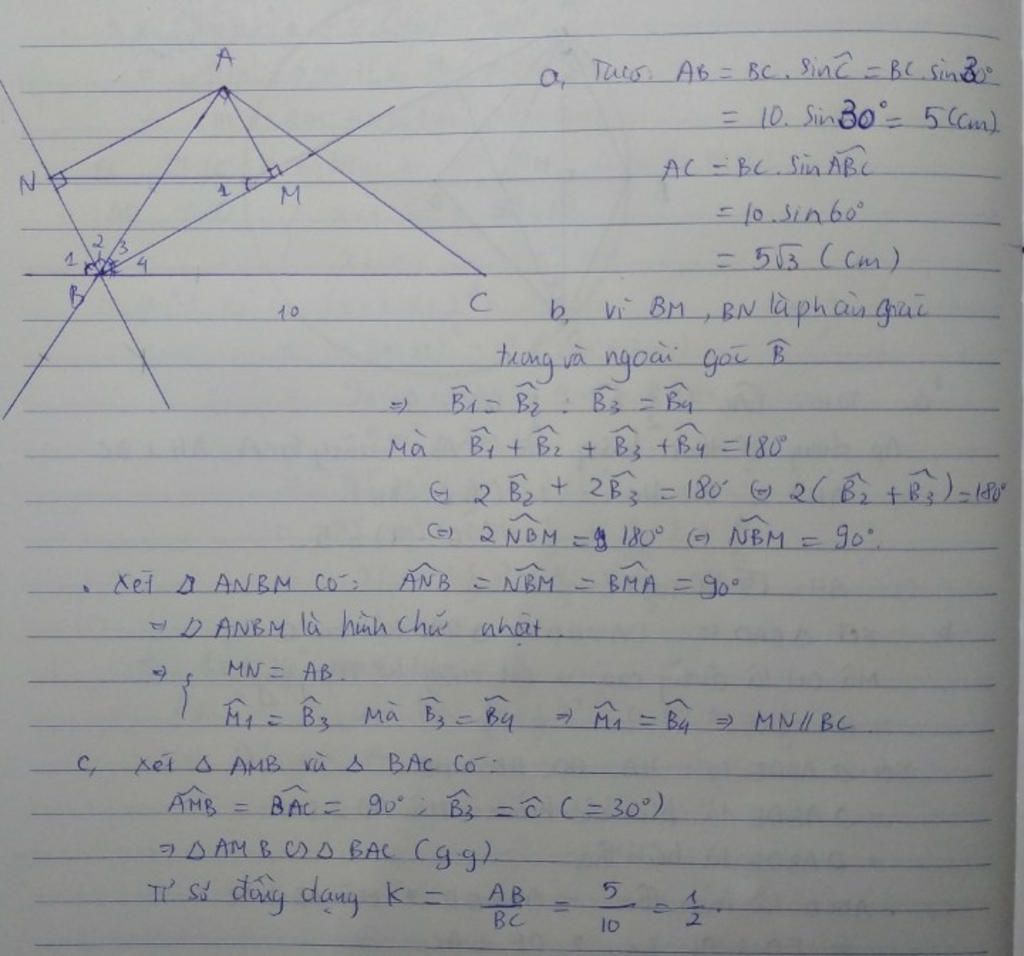 A
N
M
1
1 2 3 4
B
C
10
a, Ta có: AB = BC . sin Ĉ = BC . sin 30°
= 10 . sin 30° = 5 (cm)
AC = BC . sin ABC̑
= 10 . sin 60°
= 5√3 (cm)
b, vì BM, BN là phân giác
trong và ngoài góc B̂
⇒ B̂1 = B̂2 ; B̂3 = B̂4
Mà B̂1 + B̂2 + B̂3 + B̂4 = 180°
⇔ 2 B̂2 + 2 B̂3 = 180° ⇔ 2 ( B̂2 + B̂3 ) = 180°
⇔ 2 NBM̑ = 180° ⇔ NBM̑ = 90°.
. Xét ▱ ANBM có: ANB̑ = NBM̑ = BMȂ = 90°
⇒ ▱ ANBM là hình chữ nhật.
⇒ { MN = AB.
M̂1 = B̂3 Mà B̂3 = B̂4 ⇒ M̂1 = B̂4 ⇒ MN // BC
c, Xét △ AMB và △ BAC có:
AMB̑ = BAC̑ = 90° ; B̂3 = Ĉ (= 30°)
⇒ △ AMB ∽ △ BAC (g.g)
Tỉ số đồng dạng K = AB/BC = 5/10 = 1/2.